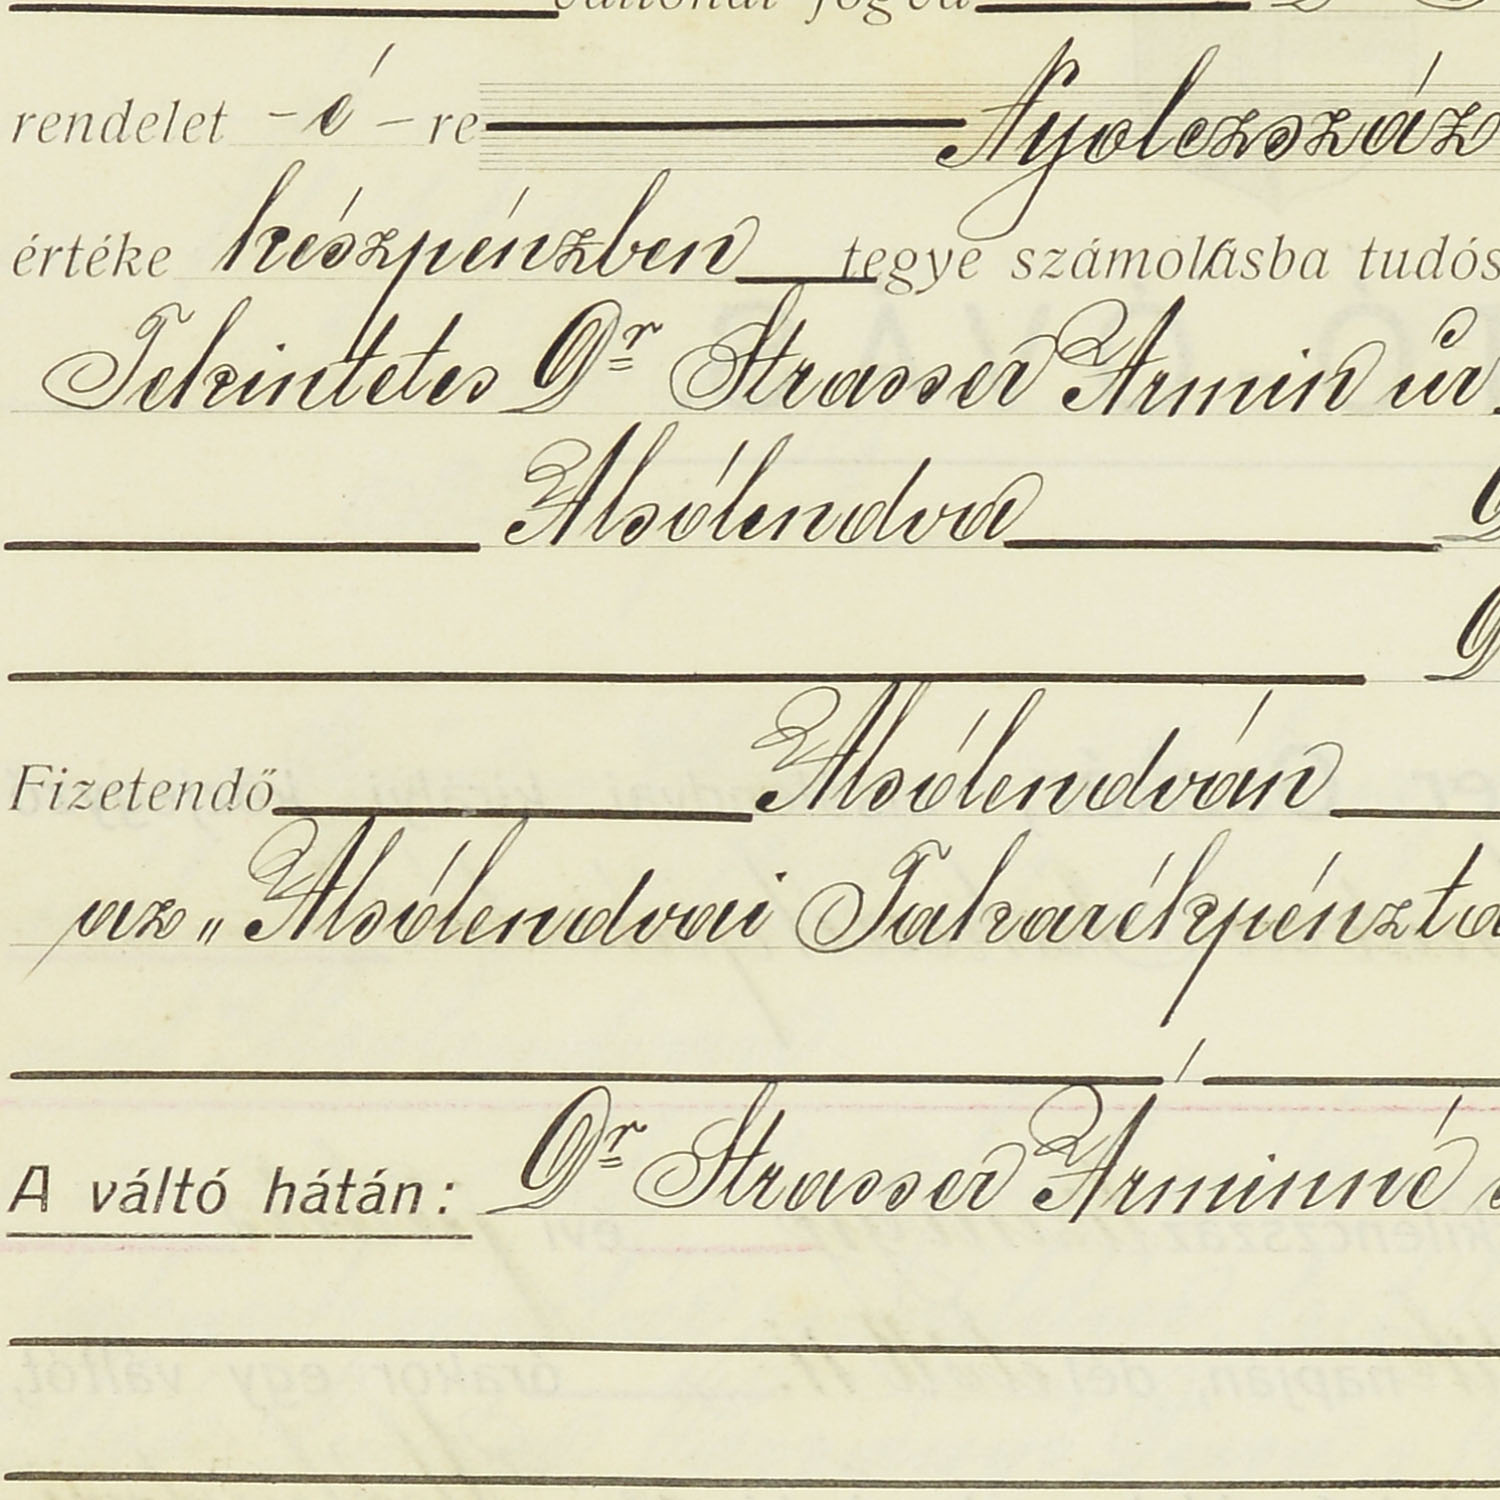 váltónál fogva
rendelet -é- re Nyolczszáz
értéke készpénzben tegye számolásba tudós
Tekintetes Dr Strasser Ármin úr
Alsólendva
Fizetendő Alsólendván
az „Alsólendvai Takarékpénzta
A váltó hátán: Dr Strasser Árminné